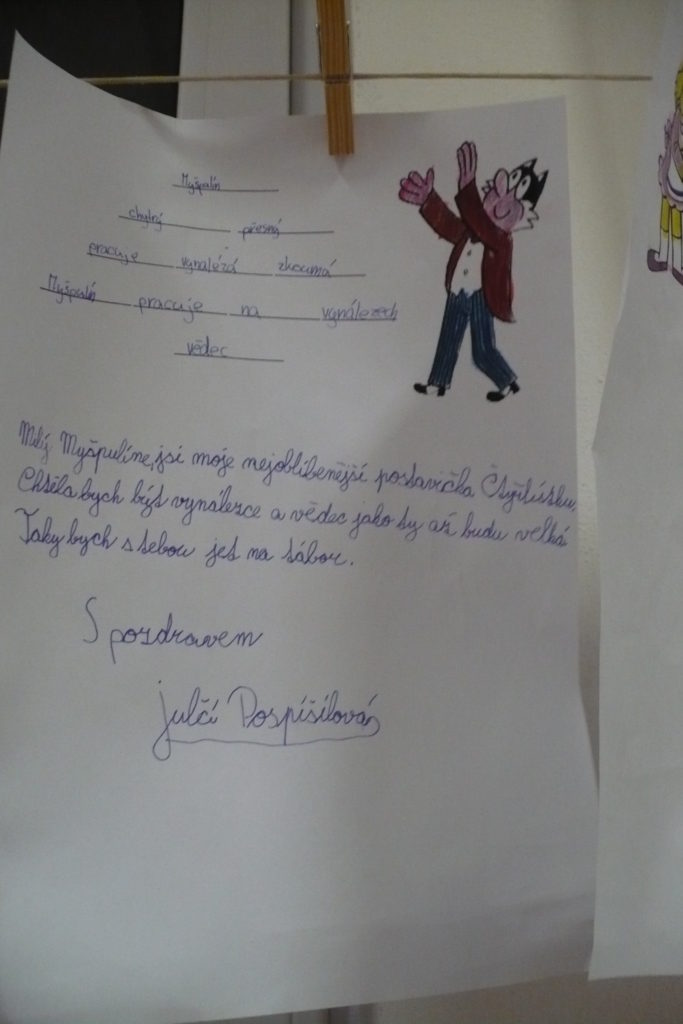 Myšpulín
chytrý přesný
pracuje vynalézá zkoumá
Myšpulín pracuje na vynálezech
vědec
Milý Myšpulíne, jsi moje nejoblíbenější postavička Čtyřlístku.
Chtěla bych být vynálezce a vědec jako ty až budu velká
Taky bych s tebou jet na tábor.
S pozdravem
Julčí Pospíšilová